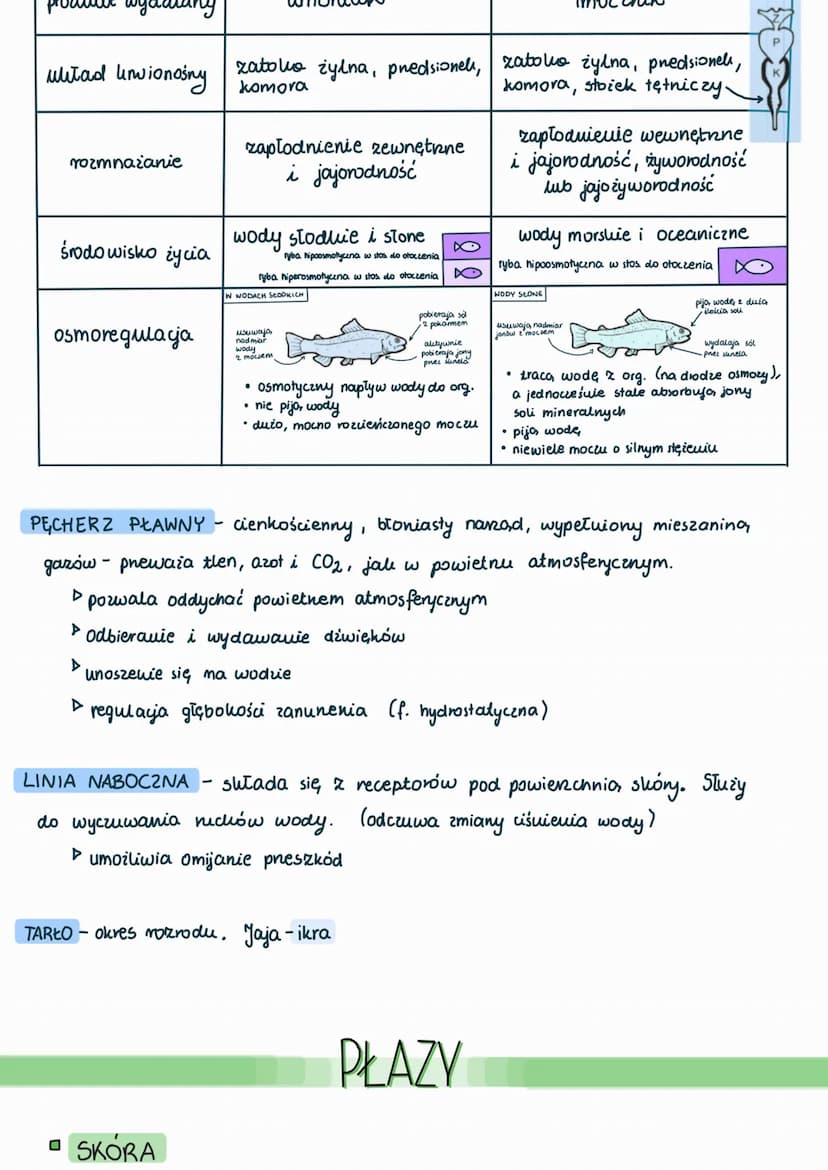 produkt wydalany
amoniak
mocznik
układ krwionośny
zatoka żylna, przedsionek,
komora
zatoka żylna, przedsionek,
komora, stożek tętniczy
Z
P
K
rozmnażanie
zapłodnienie zewnętrzne
i jajorodność
zapłodnienie wewnętrzne
i jajorodność, żyworodność
lub jajożyworodność
środowisko życia
wody słodkie i słone
ryba hipoosmotyczna w stos. do otoczenia
ryba hiperosmotyczna w stos. do otoczenia
wody morskie i oceaniczne
ryba hipoosmotyczna w stos. do otoczenia
osmoregulacja
W WODACH SŁODKICH
usuwają
nadmiar
wody
z moczem
pobierają sól
z pokarmem
aktywnie
pobierają jony
przez skrzela
• osmotyczny napływ wody do org.
• nie piją wody
• dużo, mocno rozcieńczonego moczu
WODY SŁONE
usuwają nadmiar
jonów z moczem
piją wodę z dużą
ilością soli
wydalają sól
przez skrzela
• tracą wodę z org. (na drodze osmozy),
a jednocześnie stale absorbują jony
soli mineralnych
• piją wodę
• niewiele moczu o silnym stężeniu
PĘCHERZ PŁAWNY - cienkościenny, błoniasty narząd, wypełniony mieszaniną
gazów - przeważa tlen, azot i CO2, jak w powietrzu atmosferycznym.
▷ pozwala oddychać powietrzem atmosferycznym
▷ odbieranie i wydawanie dźwięków
▷ unoszenie się na wodzie
▷ regulacja głębokości zanurzenia (f. hydrostatyczna)
LINIA NABOCZNA - składa się z receptorów pod powierzchnią skóry. Służy
do wyczuwania ruchów wody. (odczuwa zmiany ciśnienia wody)
▷ umożliwia omijanie przeszkód
TARŁO - okres rozrodu. Jaja - ikra
PŁAZY
SKÓRA